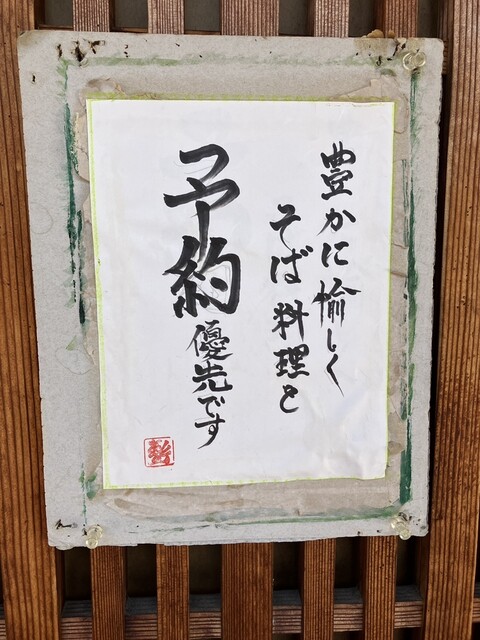 豊かに愉しく
そば料理と
予約優先です